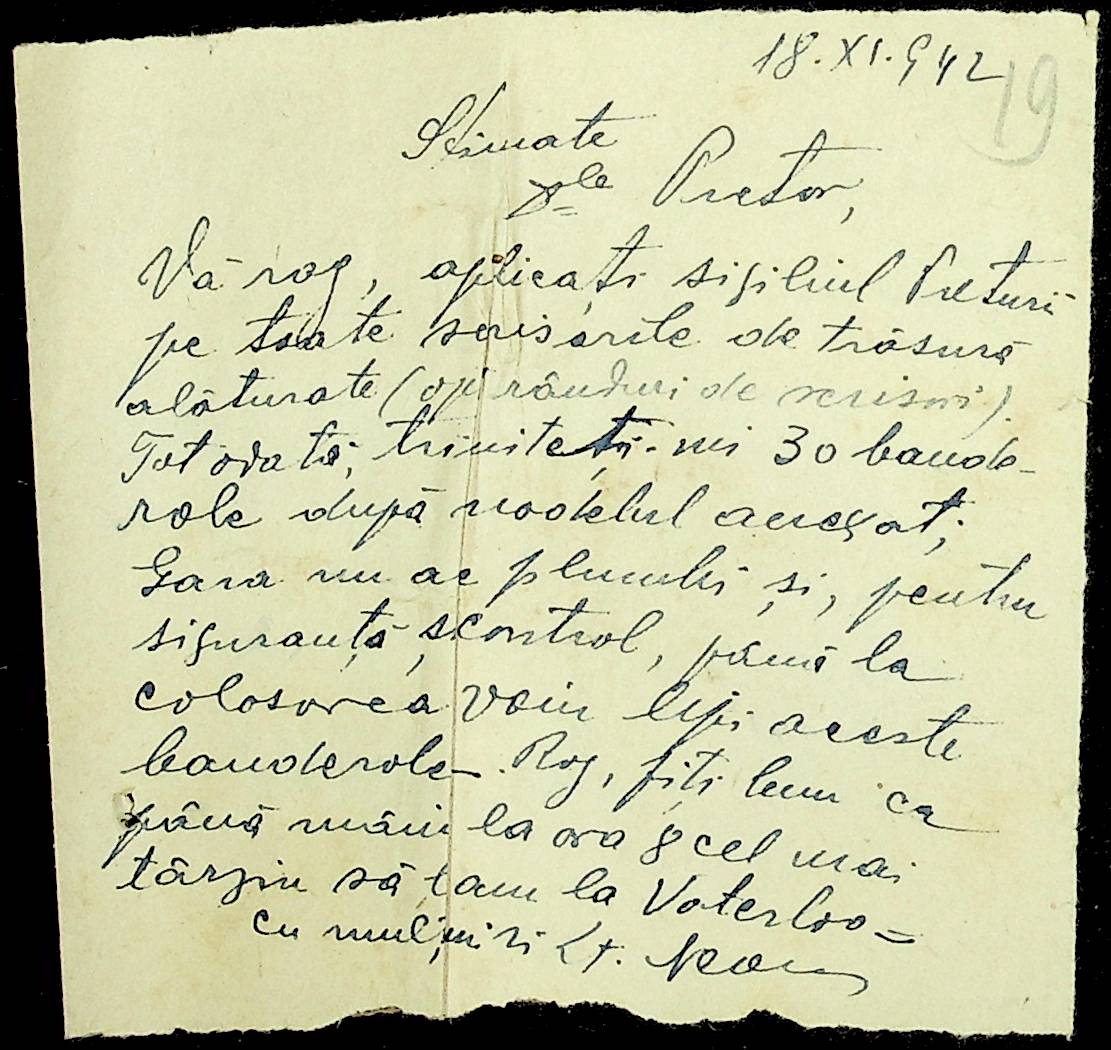 18.XI.942
19
Stimate
Dle Pretor,
Vă rog, aplicați sigiliul Preturii
pe toate scrisorile de trăsură
alăturate (opt rânduri de scrisori).
Totodată, trimiteți-mi 30 bande-
role după modelul anexat;
Gara nu are plumbi și, pentru
siguranță și control, până la
colosarea vom lipi aceste
banderole. Rog, fiți bun ca
până mâine la ora 8 cel mai
târziu să fam la Vaterloo =
cu mulțumiri Lt.